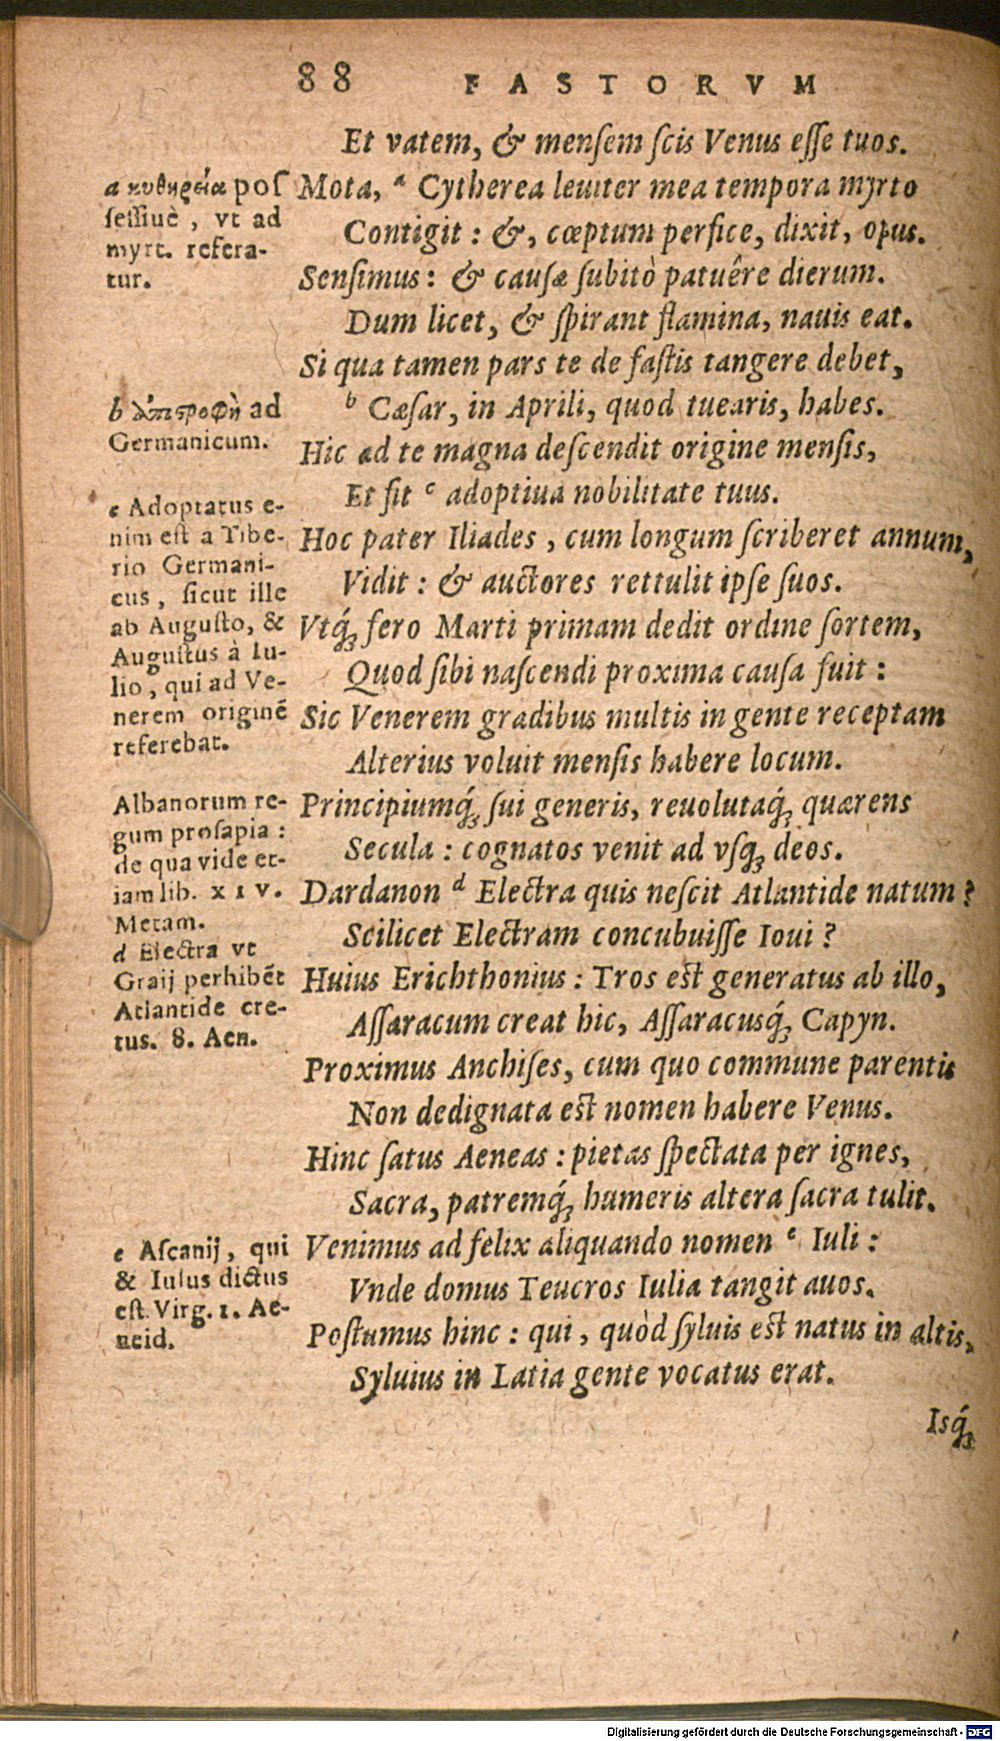 88 FASTORVM
Et vatem, & menſem ſcis Venus eſſe tuos.
Mota, ᵃ Cytherea leuiter mea tempora myrto
Contigit: &, cœptum perfice, dixit, opus.
Senſimus: & cauſæ ſubitò patuêre dierum.
Dum licet, & ſpirant flamina, nauis eat.
Si qua tamen pars te de faſtis tangere debet,
ᵇ Cæſar, in Aprili, quod tuearis, habes.
Hic ad te magna deſcendit origine menſis,
Et fit ᶜ adoptiua nobilitate tuus.
Hoc pater Iliades, cum longum ſcriberet annum,
Vidit: & auctores rettulit ipſe ſuos.
Vtq́ꝫ fero Marti primam dedit ordine ſortem,
Quod ſibi naſcendi proxima cauſa fuit:
Sic Venerem gradibus multis in gente receptam
Alterius voluit menſis habere locum.
Principiumq́ꝫ ſui generis, reuolutaq́ꝫ quærens
Secula: cognatos venit ad vſqꝫ deos.
Dardanon ᵈ Electra quis neſcit Atlantide natum?
Scilicet Electram concubuiſſe Ioui?
Huius Erichthonius: Tros eſt generatus ab illo,
Aſſaracum creat hic, Aſſaracusq́ꝫ Capyn.
Proximus Anchiſes, cum quo commune parentis
Non dedignata eſt nomen habere Venus.
Hinc ſatus Aeneas: pietas ſpectata per ignes,
Sacra, patremq́ꝫ humeris altera ſacra tulit.
Venimus ad felix aliquando nomen ᵉ Iuli:
Vnde domus Teucros Iulia tangit auos.
Poſtumus hinc: qui, quòd ſyluis eſt natus in altis,
Syluius in Latia gente vocatus erat.
Isq́ꝫ
a κυθηρεία poſ
ſeſſiuè, vt ad
myrt. refera-
tur.
b ἀποστροφὴ ad
Germanicum.
c Adoptatus e-
nim eſt a Tibe-
rio Germani-
cus, ſicut ille
ab Auguſto, &
Auguſtus à Iu-
lio, qui ad Ve-
nerem originē
referebat.
Albanorum re-
gum proſapia:
de qua vide et-
iam lib. XIV.
Metam.
d Electra vt
Graij perhibēt
Atlantide cre-
tus. 8. Aen.
e Aſcanij, qui
& Iulus dictus
eſt Virg. 1. Ae-
neid.
Digitalisierung gefördert durch die Deutsche Forschungsgemeinschaft - DFG